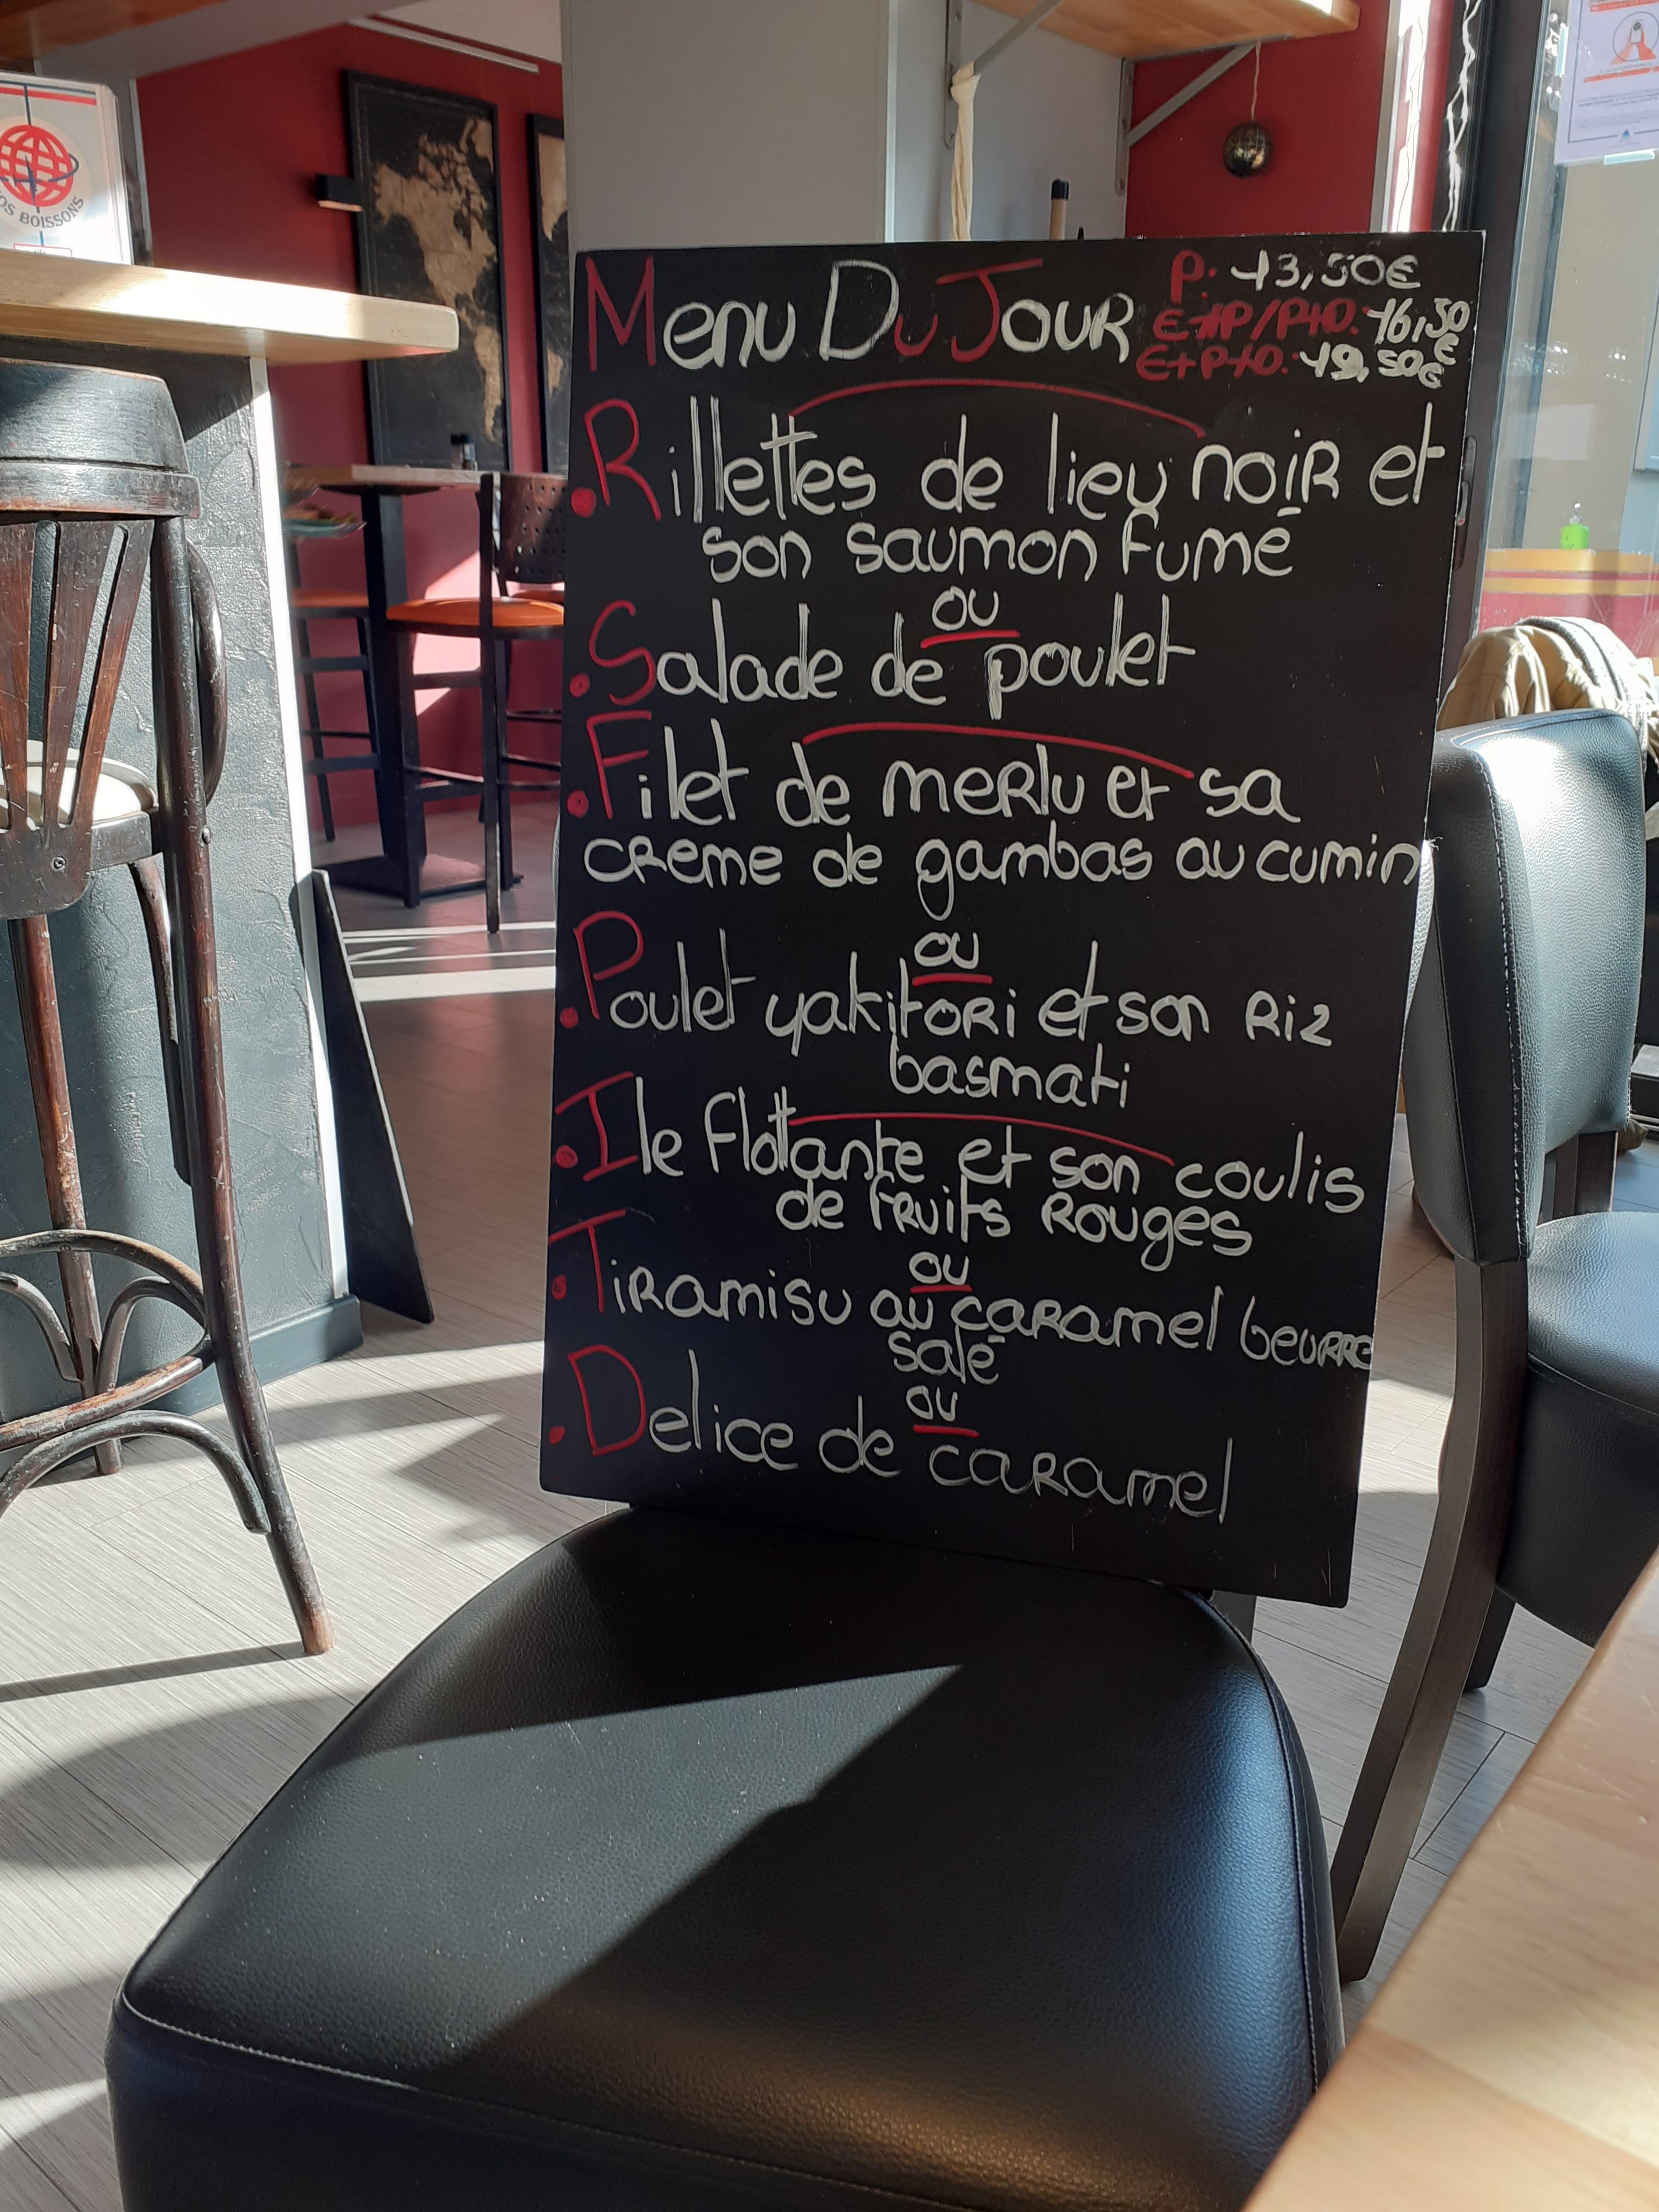 OS BOISSONS
Menu Du Jour
P: 13,50€
E+P/P+D: 16,50€
E+P+D: 19,50€
.Rillettes de lieu noir et
son saumon fumé
ou
.Salade de poulet
.Filet de merlu et sa
creme de gambas au cumin
ou
.Poulet yakitori et son riz
basmati
.Ile flottante et son coulis
de fruits rouges
ou
.Tiramisu au caramel beurre
salé
ou
.Delice de caramel